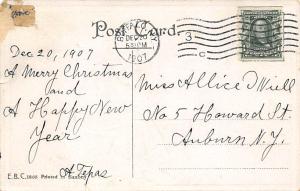 Post Card.
DEC 20
6 30 PM
1907
3
C
Dec 20, 1907
A Merry Christmas
and
A Happy New
Year
Miss Allice
No 5 Howard St.
Auburn N.Y.
E. B. C. Printed in